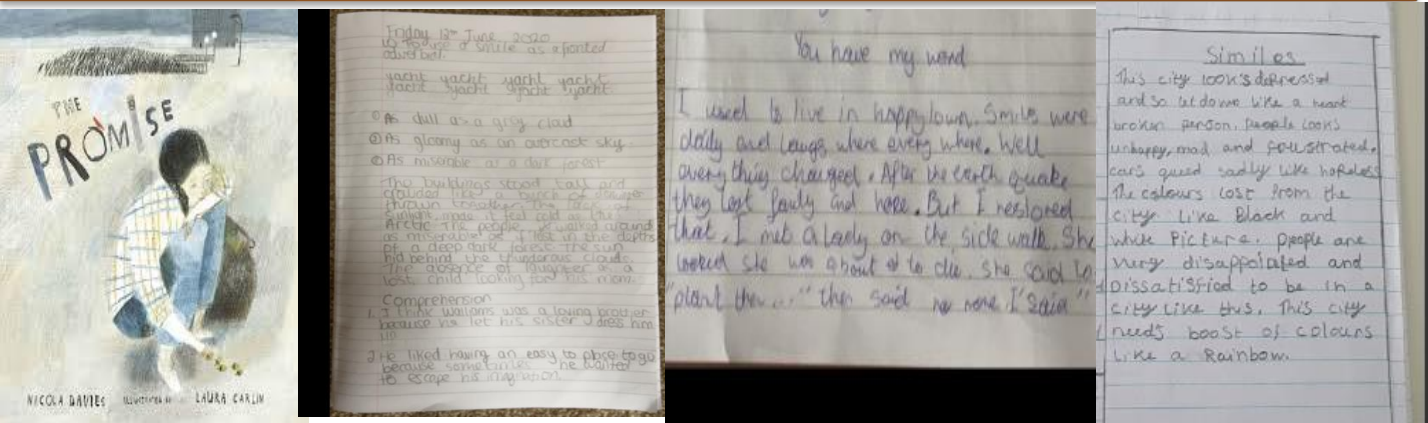 THE
PROMISE
NICOLA DAVIES ILLUSTRATED BY LAURA CARLIN
Friday 12th June 2020
LO To use a simile as a fronted
adverbial.
yacht yacht yacht yacht
yacht yacht yacht yacht
① As dull as a grey cloud
② As gloomy as an overcast sky
③ As miserable as a dark forest
The buildings stood tall and
crowded like a bunch of
thrown together. The lack of
sunlight made it feel cold as the
Arctic. The people walked around
as miserable as if lost in the depths
of a deep dark forest. The sun
hid behind the thunderous clouds.
The absence of laughter as a
lost child looking for his mom.
Comprehension
1. I think Walliams was a loving brother
because he let his sister dress him
up
2. He liked having an easy to place to go
because sometimes he wanted
to escape his
You have my word
I used to live in happytown. Smiles were
daily and laugs where every where. Well
every thing changed. After the earth quake
they lost and hope. But I restored
that. I met a lady on the side walk. She
looked she was about to die. She said to
"plant them..." then said no more. I "said"
Similes
This city look's depressed
and so let down like a heart
broken person. People looks
unhappy, mad and
cars queed sadly like hopeless
The colours lost from the
city like Black and
white Picture. people are
very disappointed and
Dissatisfied to be in a
city Like this. This city
needs boost of colours
Like a Rainbow.